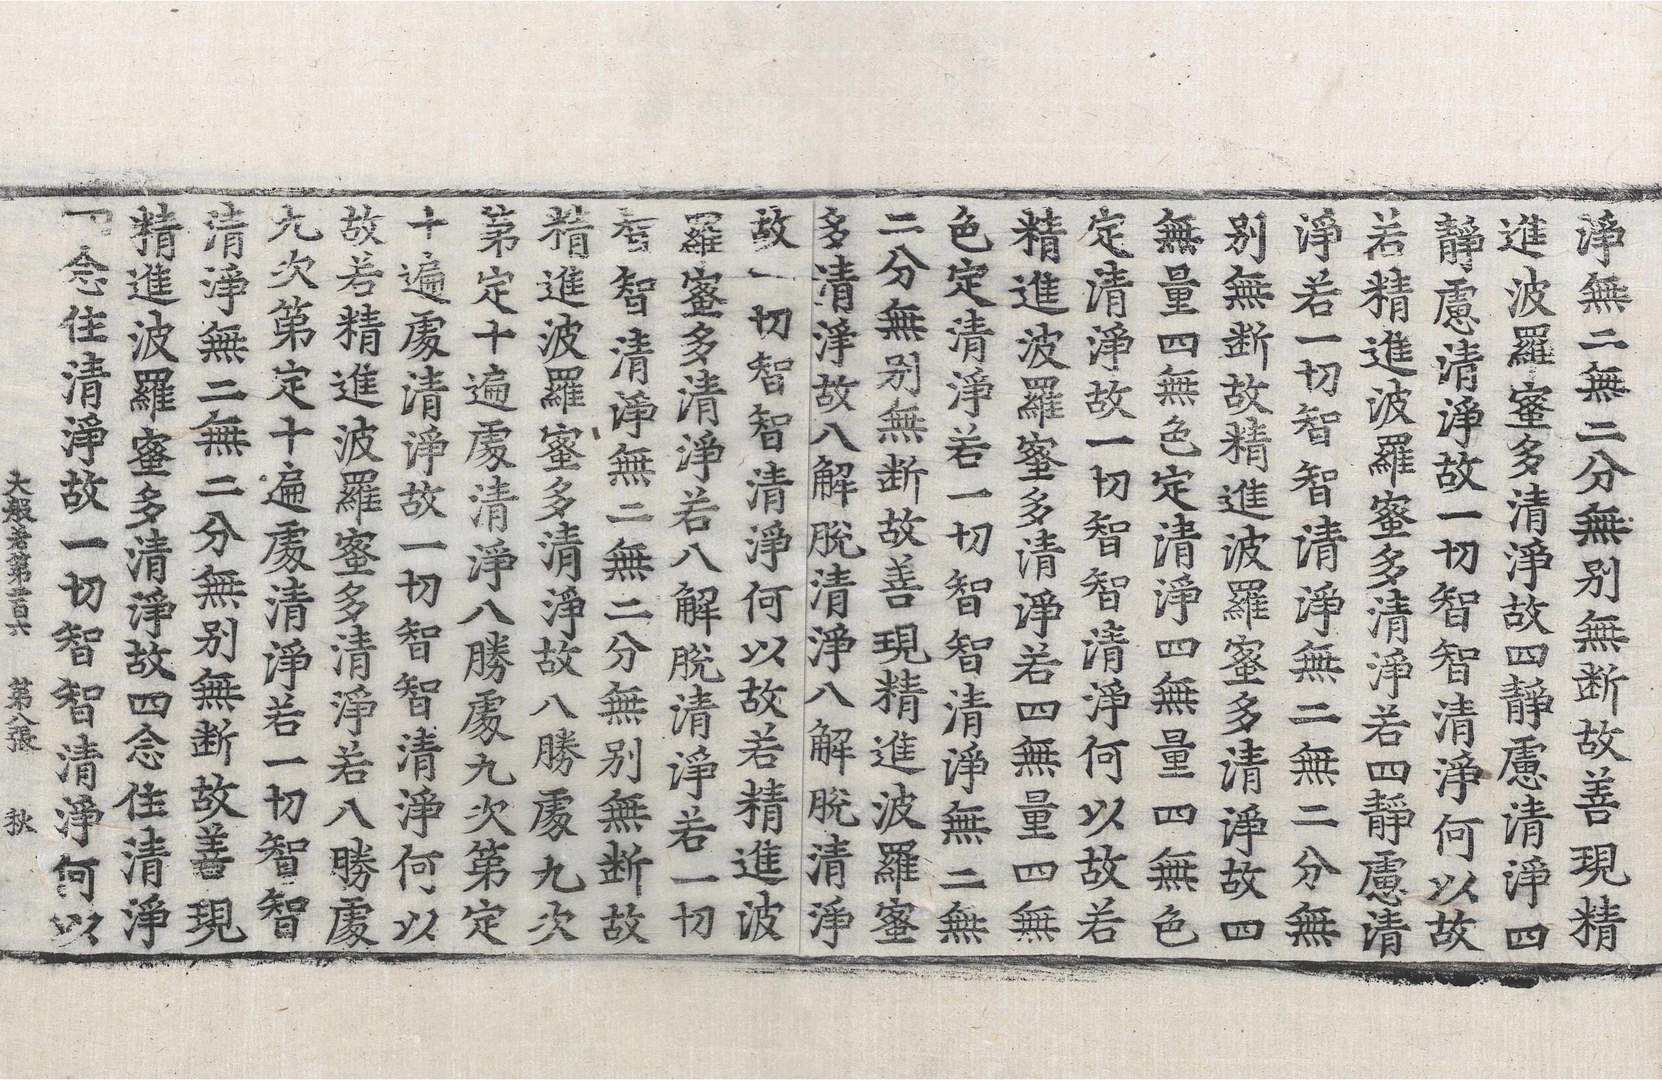 淨無二無二分無别無断故善現精
進波羅蜜多清淨故四靜慮清淨四
靜慮清淨故一切智智清淨何以故
若精進波羅蜜多清淨若四靜慮清
淨若一切智智清淨無二無二分無
别無断故精進波羅蜜多清淨故四
無量四無色定清淨四無量四無色
定清淨故一切智智清淨何以故若
精進波羅蜜多清淨若四無量四無
色定清淨若一切智智清淨無二無
二分無别無断故善現精進波羅蜜
多清淨故八解脫清淨八解脫清淨
故一切智智清淨何以故若精進波
羅蜜多清淨若八解脫清淨若一切
智智清淨無二無二分無别無断故
精進波羅蜜多清淨故八勝處九次
第定十遍處清淨八勝處九次第定
十遍處清淨故一切智智清淨何以
故若精進波羅蜜多清淨若八勝處
九次第定十遍處清淨若一切智智
清淨無二無二分無别無断故善現
精進波羅蜜多清淨故四念住清淨
四念住清淨故一切智智清淨何以
大般若第二百六 第八張 秋